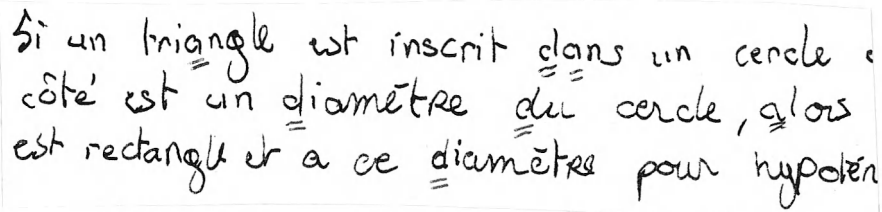 Si un triangle est inscrit dans un cercle
côté est un diamètre du cercle, alors
est rectangle et a ce diamètre pour hypotén